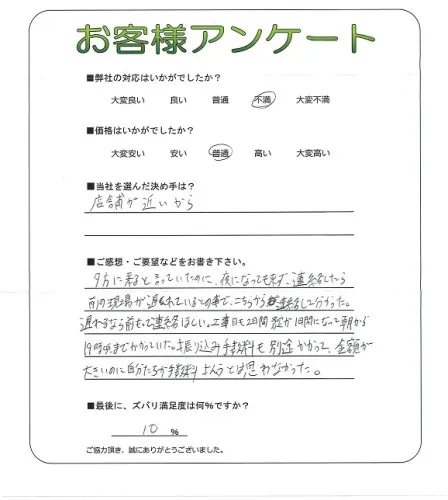 お客様アンケート
■弊社の対応はいかがでしたか？
大変良い 良い 普通 不満 大変不満
■価格はいかがでしたか？
大変安い 安い 普通 高い 大変高い
■当社を選んだ決め手は？
店舗が近いから
■ご感想・ご要望などをお書き下さい。
夕方に来ると言っていたのに、夜になっても来ず、連絡したら
前の現場が遅れているとの事で、こちらから連絡して分かった。
遅れるなら前もって連絡ほしい。工事日も2日間 が1日間になって朝から
19時頃までかかっていた。振り込み手数料も別途かかって、金額が
大きいのに自分たちが手数料 とは思わなかった。
■最後に、ズバリ満足度は何％ですか？
10 ％
ご協力頂き、誠にありがとうございました。